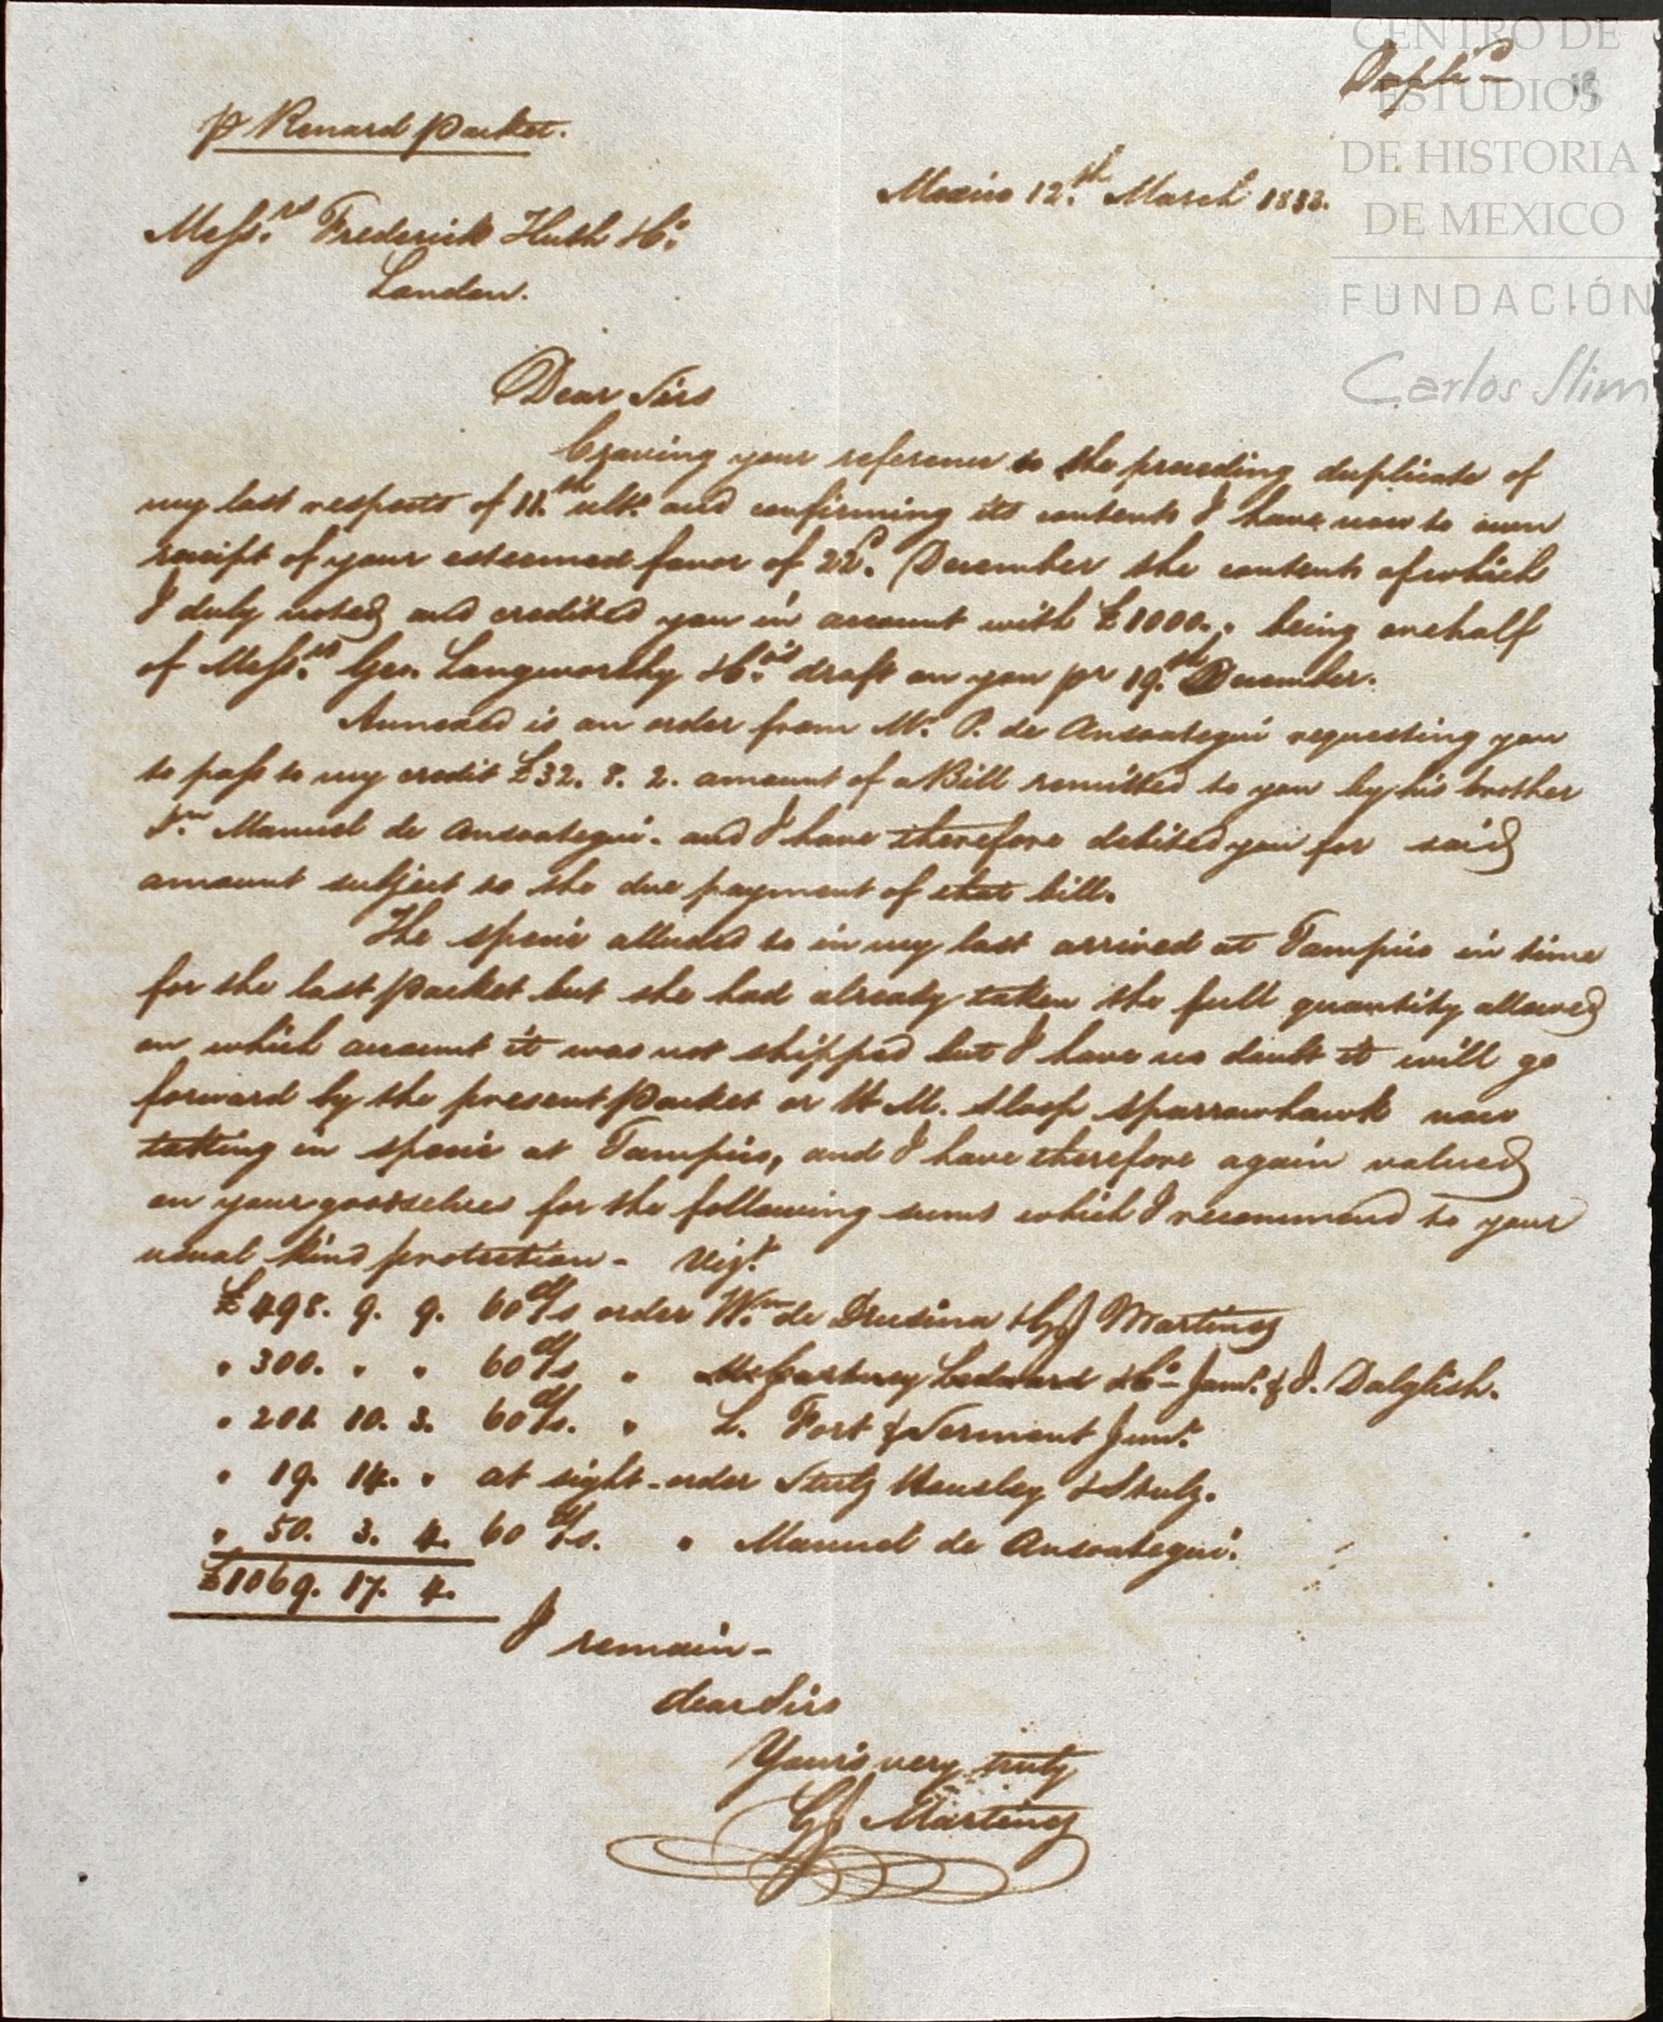 CENTRO DE
ESTUDIOS
DE HISTORIA
DE MEXICO
FUNDACIÓN
Carlos Slim
Dupli.ca
19
p Renard packet.
Mexico 12.th March 1838.
Mess.rs Frederick Huth & Co.
London.
Dear Sirs
Craving your reference to the preceding duplicate of
my last respects of 11.th ulto. and confirming its contents I have now to own
receipt of your esteemed favor of 22d. December the contents of which
I duly noted and credited you in account with £1000. " being onehalf
of Mess.rs Geo. Langworthy & Co.'s draft on you pr 19.th December.
Annexed is an order from Mr. P. de Ansoategui requesting you
to pass to my credit £32. 8. 2. amount of a Bill remitted to you by his brother
Dn. Manuel de Ansoategui. and I have therefore debited you for said
amount subject to the due payment of that bill.
The specie alluded to in my last arrived at Tampico in time
for the last packet but she had already taken the full quantity allowed
on which account it was not shipped but I have no doubt it will go
forward by the present packet or H.M. sloop Sparrowhawk now
taking in specie at Tampico, and I have therefore again valued
on your goodselves for the following sums which I recommend to your
usual kind protection - viz.t
£498. 9. 9. 60 d/s order Wm. de Drusina & Co. Martinez
" 300. " " 60 d/s " McCartney Ledward & Co. & J. Dalglish.
" 201. 10. 3. 60 d/s. " L. Fort & Serment
" 19. 14. " at sight - order Stutz Hensley & Stutz.
" 50. 3. 4. 60 d/s. " Manuel de Ansoategui.
£1069. 17. 4.
I remain -
dear Sirs
Yours very truly
G J Martinez